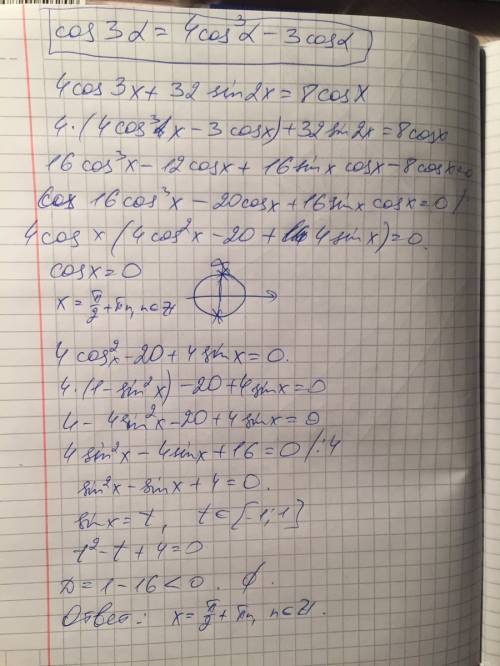 cos 3α = 4cos³α - 3cosα
4cos 3x + 32 sin2x = 8cosx
4·(4cos³x - 3cosx) + 32 sin 2x = 8cosx
16cos³x - 12cosx + 16sinx cosx - 8cosx = 0
16cos³x - 20cosx + 16sinx cosx = 0 /
4cos x (4cos²x - 20 + 4sinx) = 0.
cosx = 0
x = π/2 + πn, n∈Z
4cos²x - 20 + 4sinx = 0.
4·(1 - sin²x) - 20 + 4sinx = 0
4 - 4sin²x - 20 + 4sinx = 0
4sin²x - 4sinx + 16 = 0 /:4
sin²x - sinx + 4 = 0.
sinx = t, t∈[-1;1]
t² - t + 4 = 0
D = 1 - 16 < 0. ∅.
Ответ: x = π/2 + πn, n∈Z.